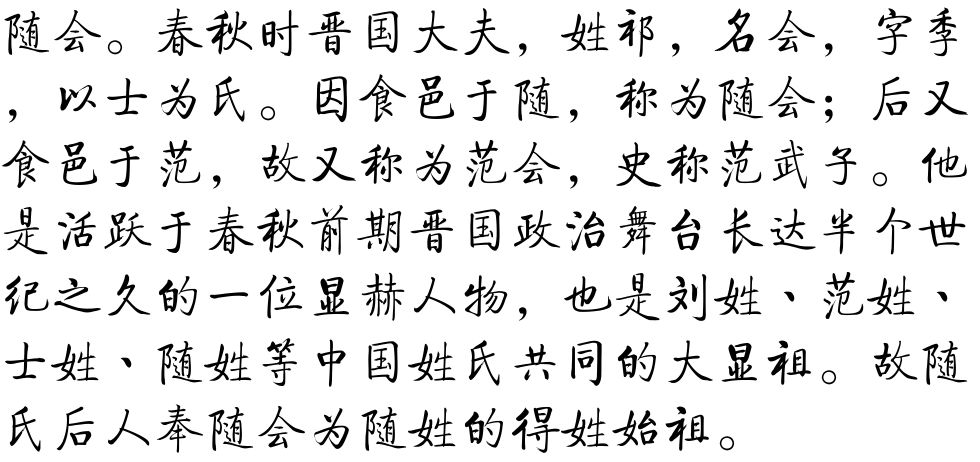 随会。春秋时晋国大夫，姓祁，名会，字季
，以士为氏。因食邑于随，称为随会；后又
食邑于范，故又称为范会，史称范武子。他
是活跃于春秋前期晋国政治舞台长达半个世
纪之久的一位显赫人物，也是刘姓、范姓、
士姓、随姓等中国姓氏共同的大显祖。故随
氏后人奉随会为随姓的得姓始祖。